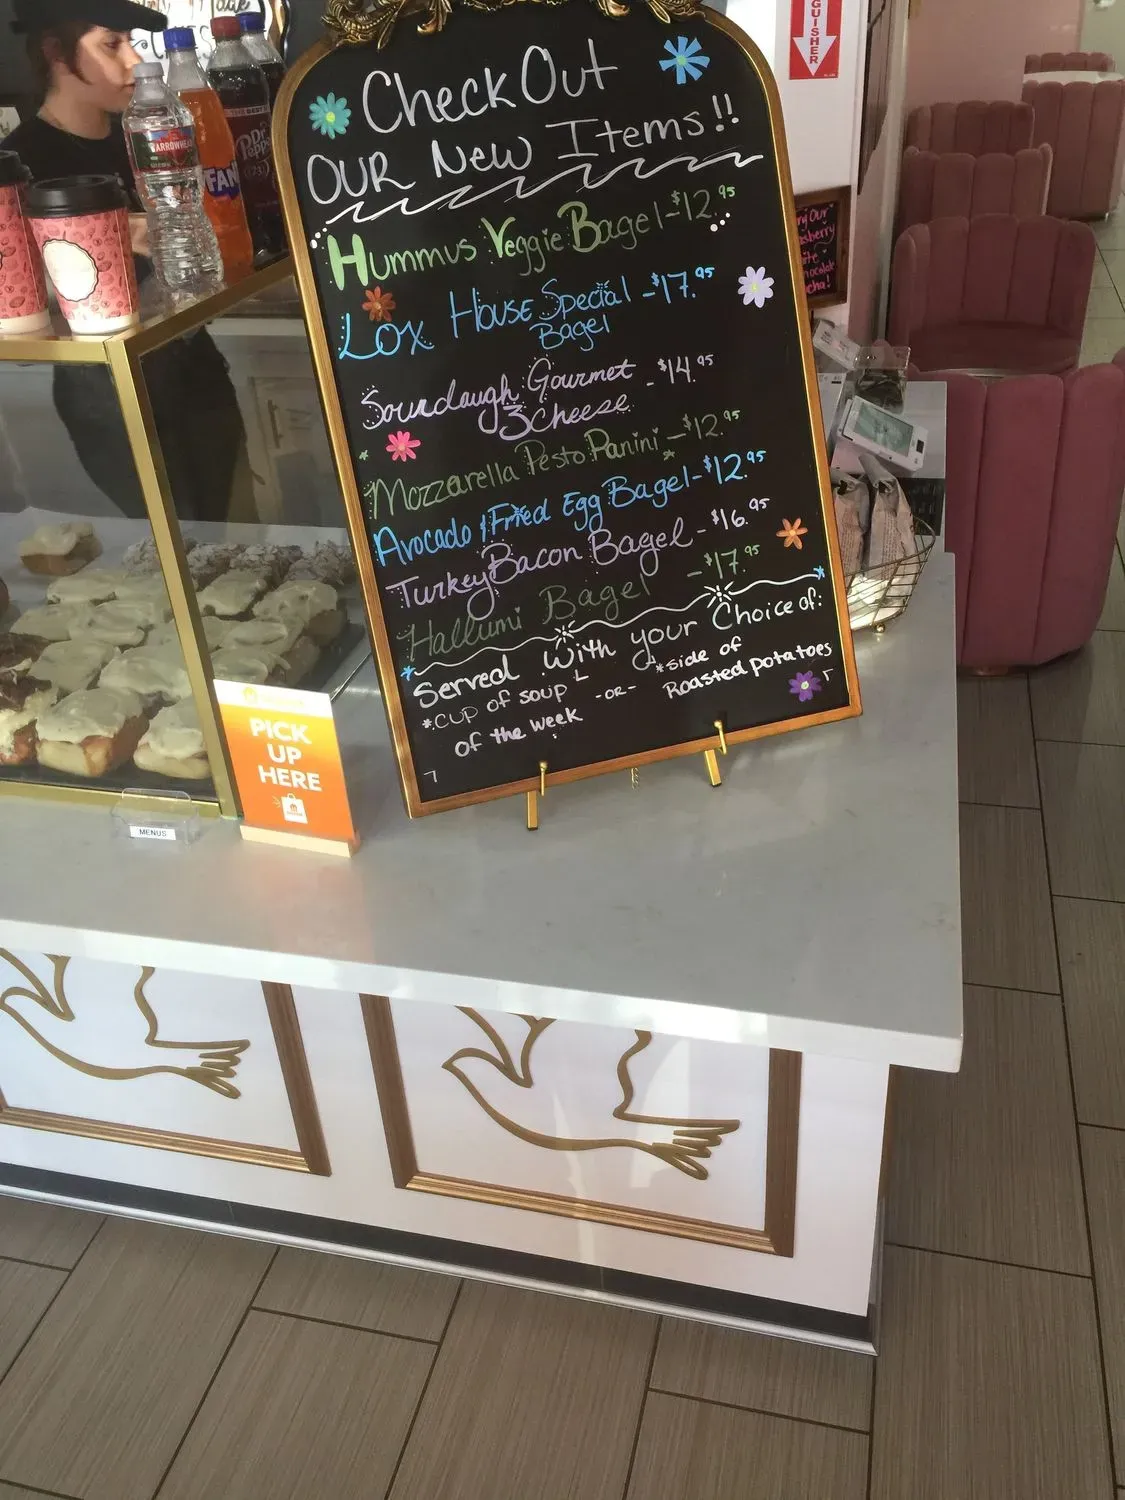 Check Out
OUR New Items!!
Hummus Veggie Bagel - $12.95
Lox House Special - $17.95
Bagel
Sourdaugh Gourmet - $14.95
3 Cheese
Mozzarella Pesto Panini - $12.95
Avocado & Fried Egg Bagel - $12.95
Turkey Bacon Bagel - $16.95
Hallumi Bagel - $17.95
Served with your Choice of:
*Cup of soup
of the week
-OR-
*side of
Roasted potatoes
PICK
UP
HERE
MENUS
ARROWHEAD
FAN
Dr
Pepper
GUISHER